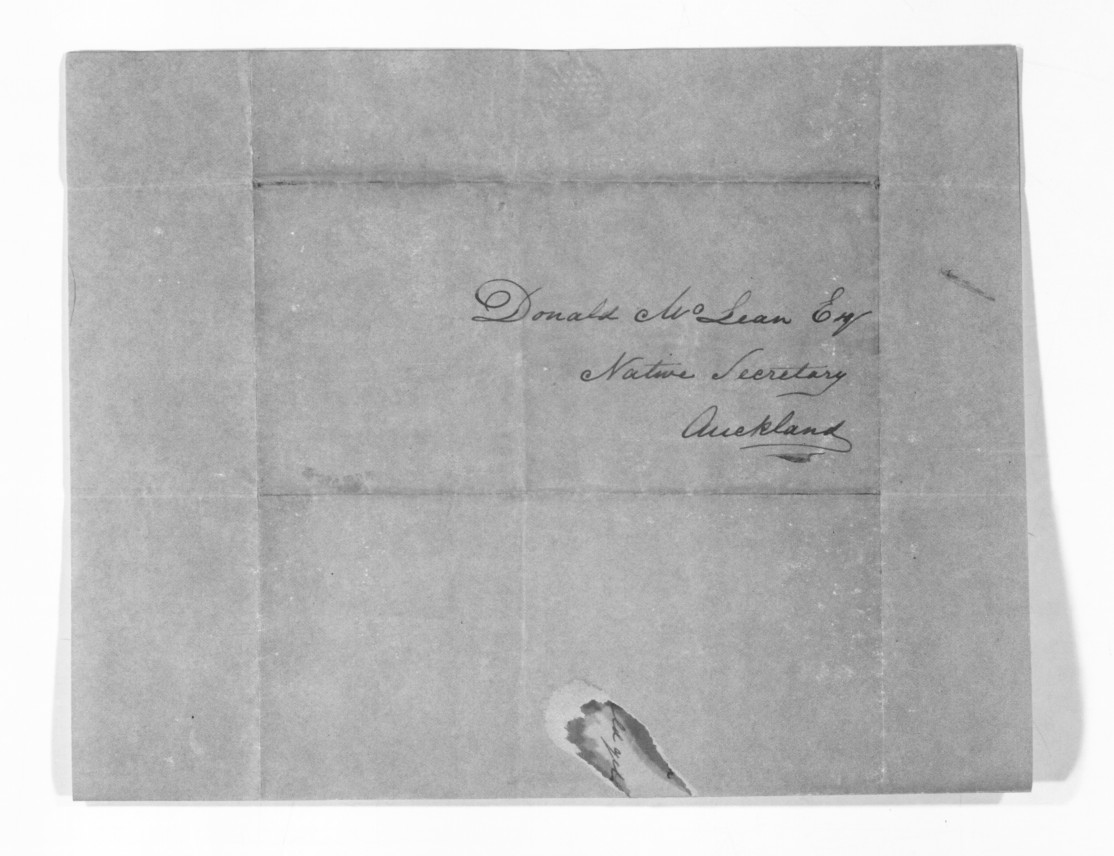 Donald McLean Esq
Native Secretary
Auckland